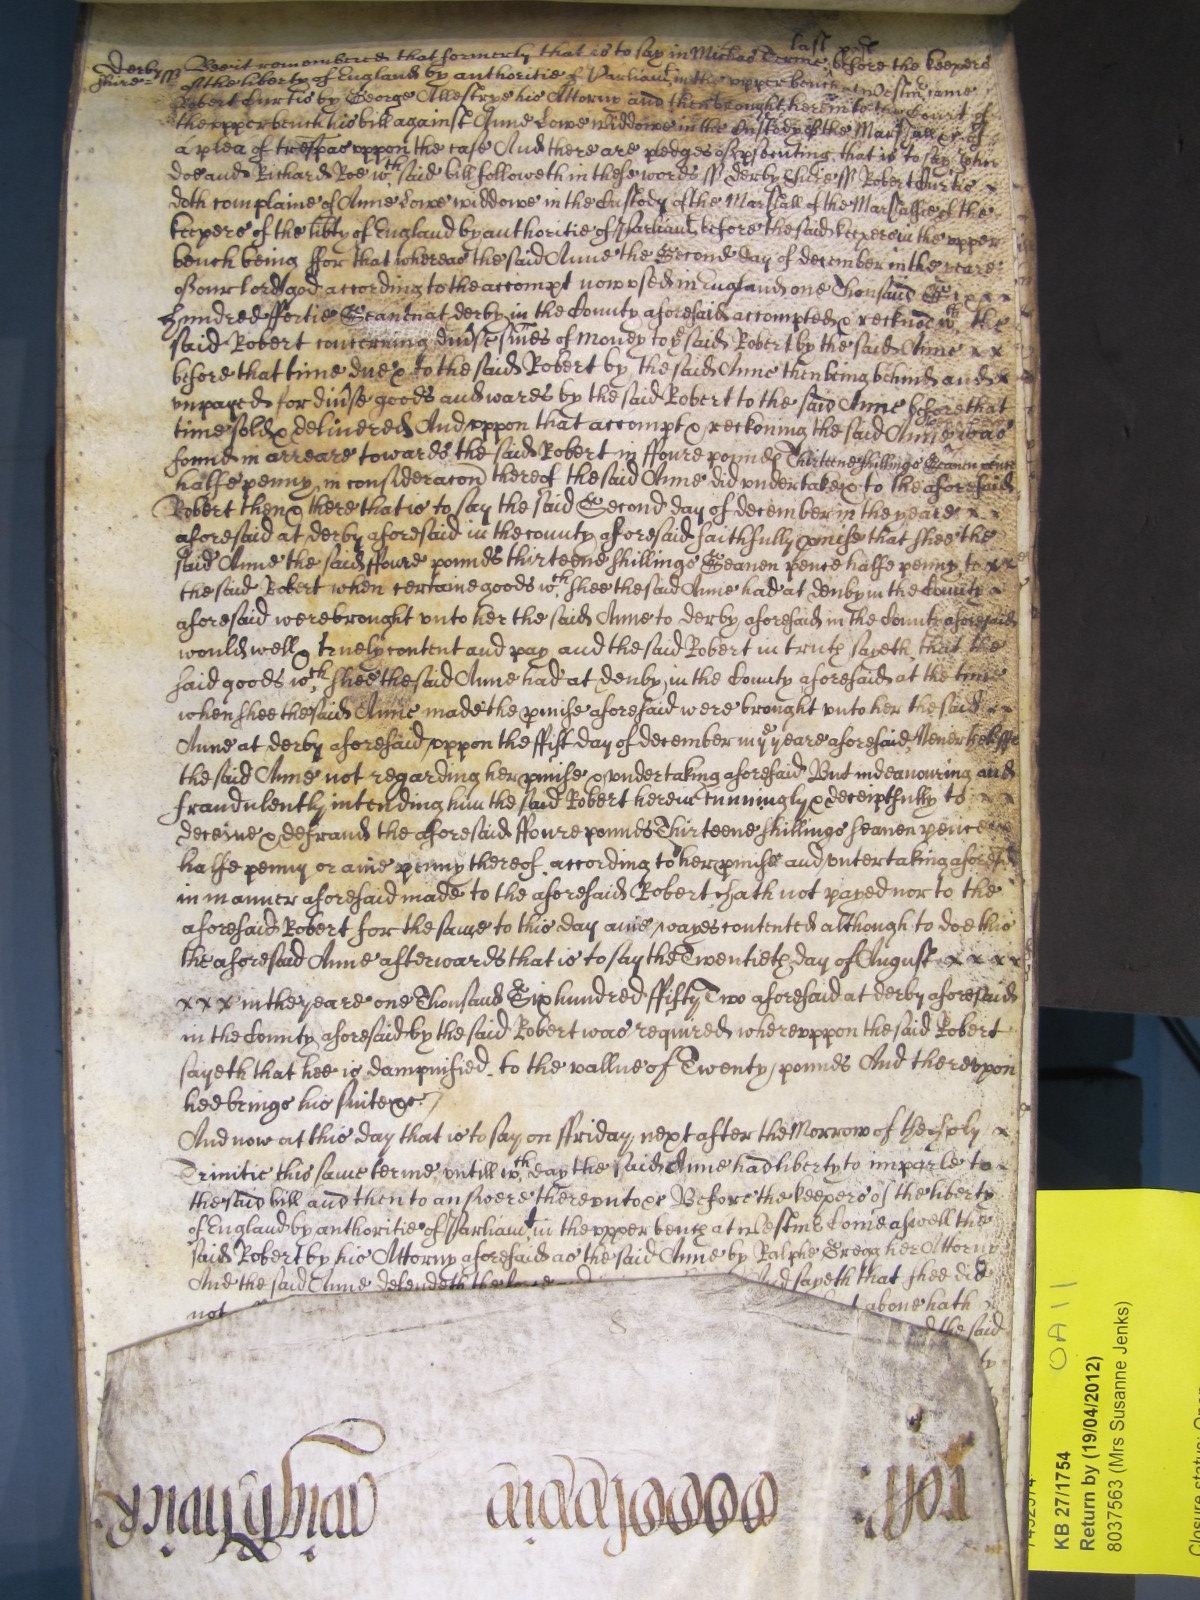 Derby
shire ss Be it remembred that formerly that is to say in Michas Terme last past before the keepers
of the liberty of England by authoritie of Parliamt in the upper bench at Westm came
Robert Curtis by George Allestrye his Attorny and then brought here into the Court of
the upper bench his bill against Anne Lowe widdowe in the Custody of the Marshall &c of
a plea of trespas uppon the case And there are pledges of psecuting that is to say John
doe and Richard Roe wch said bill followeth in these words ss derbyshire ss Robert Curtis x
doth complaine of Anne Lowe widdowe in the Custody of the Marshall of the Marshallsie of the
keepers of the libty of England by authoritie of Parliamt before the said keepers in the upper
bench being ffor that whereas the said Anne the Second day of december in the yeare
of our lord god according to the accompt now used in England one Thousand Six x x x
hundred ffortie Seaven at derby in the County aforesaid accompted & reckned wth the
said Robert concerning divse sumes of money to ye said Robert by the said Anne x x
before that time due & to the said Robert by the said Anne then being behind and x
unpayed for divse goods and wares by the said Robert to the said Anne before that
time sold & delivered And uppon that accompt & reckoning the said Anne was
found in arreare towards the said Robert in ffoure pounds Thirteene shillings Seaven pence
halfe penny in consideracon thereof the said Anne did undertake & to the aforesaid
Robert then & there that is to say the said Second day of december in the yeare x x
aforesaid at derby aforesaid in the county aforesaid faithfully pmise that shee the
said Anne the said ffoure pounds thirteene shillings Seaven pence halfe penny to x x
the said Robert when certaine goods wch shee the said Anne had at denby in the County x
aforesaid were brought unto her the said Anne to derby aforesaid in the County aforesaid
would well & truely content and pay and the said Robert in truth sayeth that the
said goods wch shee the said Anne had at denby in the County aforesaid at the time
when shee the said Anne made the pmise aforesaid were brought unto her the said x x
Anne at derby aforesaid uppon the ffift day of december in ye yeare aforesaid Neverthelesse
the said Anne not regarding her pmise & undertaking aforesaid But indeavouring and
fraudulently intending him the said Robert herein cunningly & deceiptfully to x x
deceive & defraud the aforesaid ffoure pounds Thirteene shillings seaven pence
halfe penny or anie penny thereof according to her pmise and undertaking aforesd
in manner aforesaid made to the aforesaid Robert hath not payed nor to the
aforesaid Robert for the same to this day anie wayes contented although to doe this
the aforesaid Anne afterwards that is to say the Twentieth day of August x x x x
x x x in the yeare one Thousand Six hundred ffifty Two aforesaid at derby aforesaid
in the County aforesaid by the said Robert was required whereuppon the said Robert
sayeth that hee is dampnified to the vallue of Twenty pounds And thereupon
hee brings his suite &c
And now at this day that is to say on ffriday next after the Morrow of the holy x
Trinitie this same terme untill wch day the said Anne had liberty to imparle to x
the said bill and then to answere thereunto &c Before the keepers of the liberty
of England by authoritie of Parliamt in the upper bench at Westmr Come aswell the
said Robert by his Attorny aforesaid as the said Anne by Ralphe Gregg her Attorny
And the said Anne defendeth the And sayeth that shee did
not above hath
the said
ty
roll
Wightwick
KB 27/1754
OA11
Return by (19/04/2012)
8037563 (Mrs Susanne Jenks)
Closure status: Open